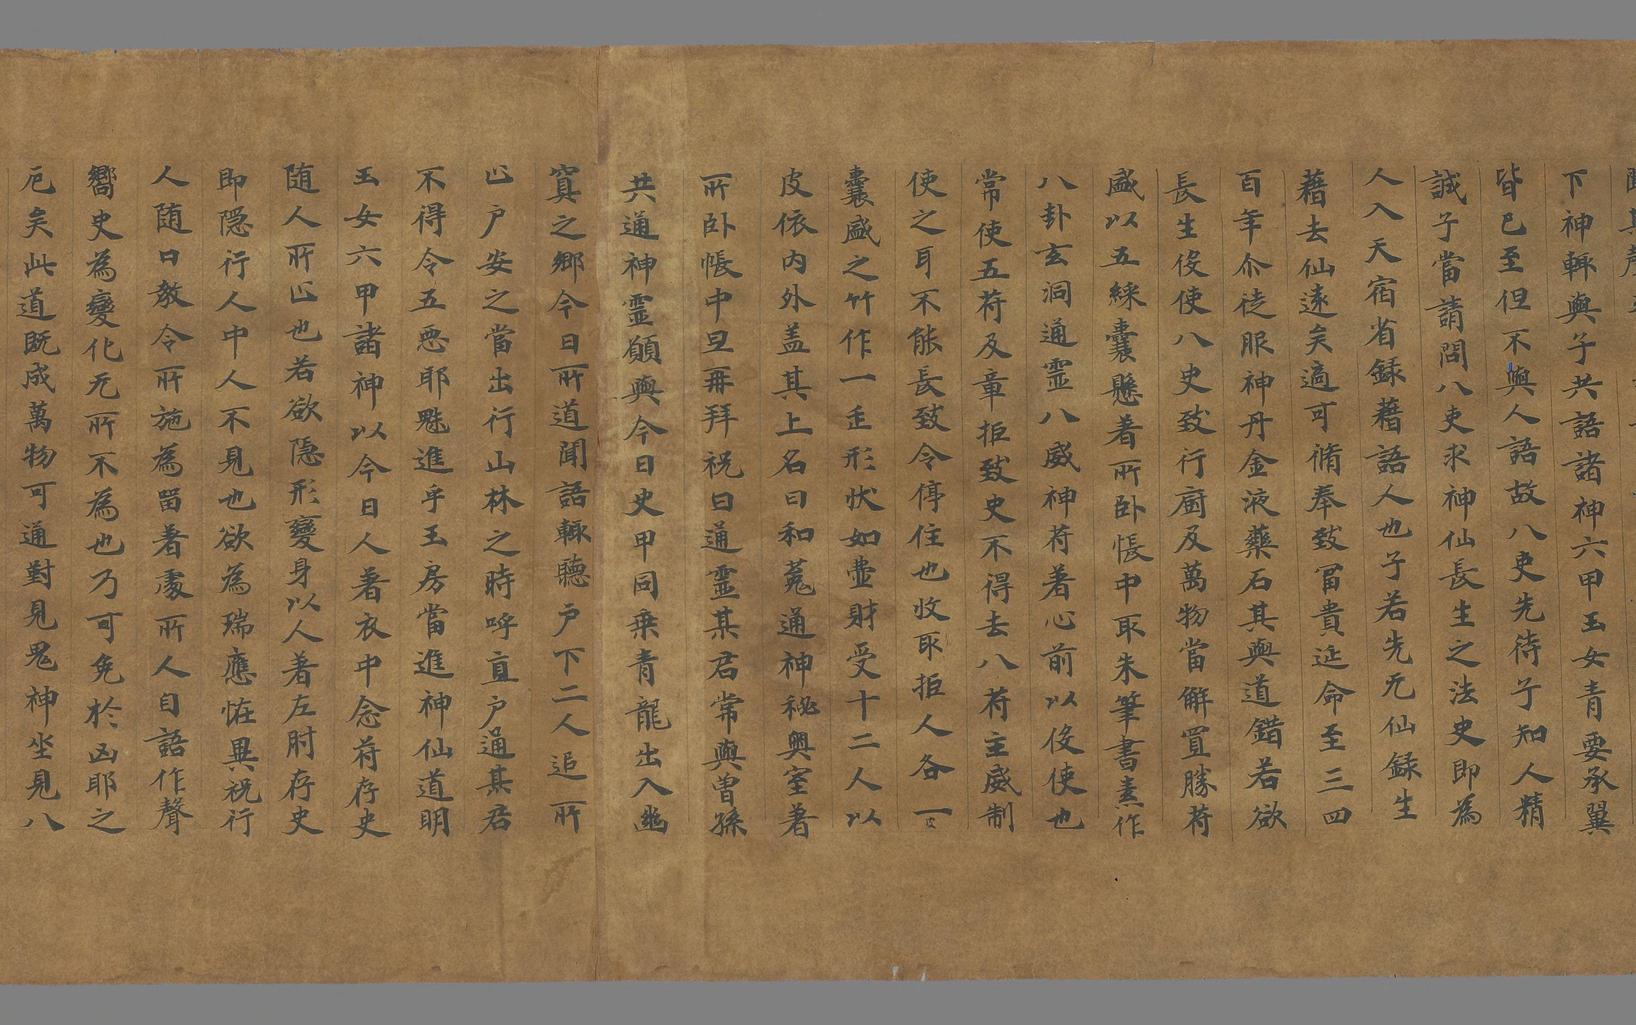 下神輙與子共語諸神六甲玉女青要承翼
皆已至但不與人語故八吏先待子知人精
誠子當請問八吏求神仙長生之法史即為
人入天宿省録藉語人也子若先无仙録生
藉去仙遠矣適可脩奉致冨貴延命至三四
百年尒徒服神丹金液藥石其與道錯若欲
長生役使八史致行廚及萬物當解買勝苻
盛以五綵囊懸著所卧悵中取朱筆書素作
八卦玄洞通霊八威神苻著心前以役使也
常使五苻及章拒致史不得去八苻主威制
使之耳不能長致令停住也收取拒人各一
囊盛之竹作一𡈼形狀如壷財受十二人以
皮依内外盖其上名曰和菟通神秘奥室著
所卧悵中旦再拜祝曰通霊某君常與曽孫
共通神霊願與今日史甲同乗青龍出入幽
㝠之郷今日所道聞語輙聴户下二人追所
止户安之當出行山林之時呼直户通某君
不得令五悪耶魅進乎玉房當進神仙道明
玉女六甲諸神以今日人著衣中念苻存史
随人所止也若欲隠形變身以人著左肘存史
即隠行人中人不見也欲為瑞應恠異祝行
人随口教令所施為留著䖏所人自語作聲
嚮史為變化无所不為也乃可免於凶耶之
厄矣此道既成萬物可通對見鬼神坐見八